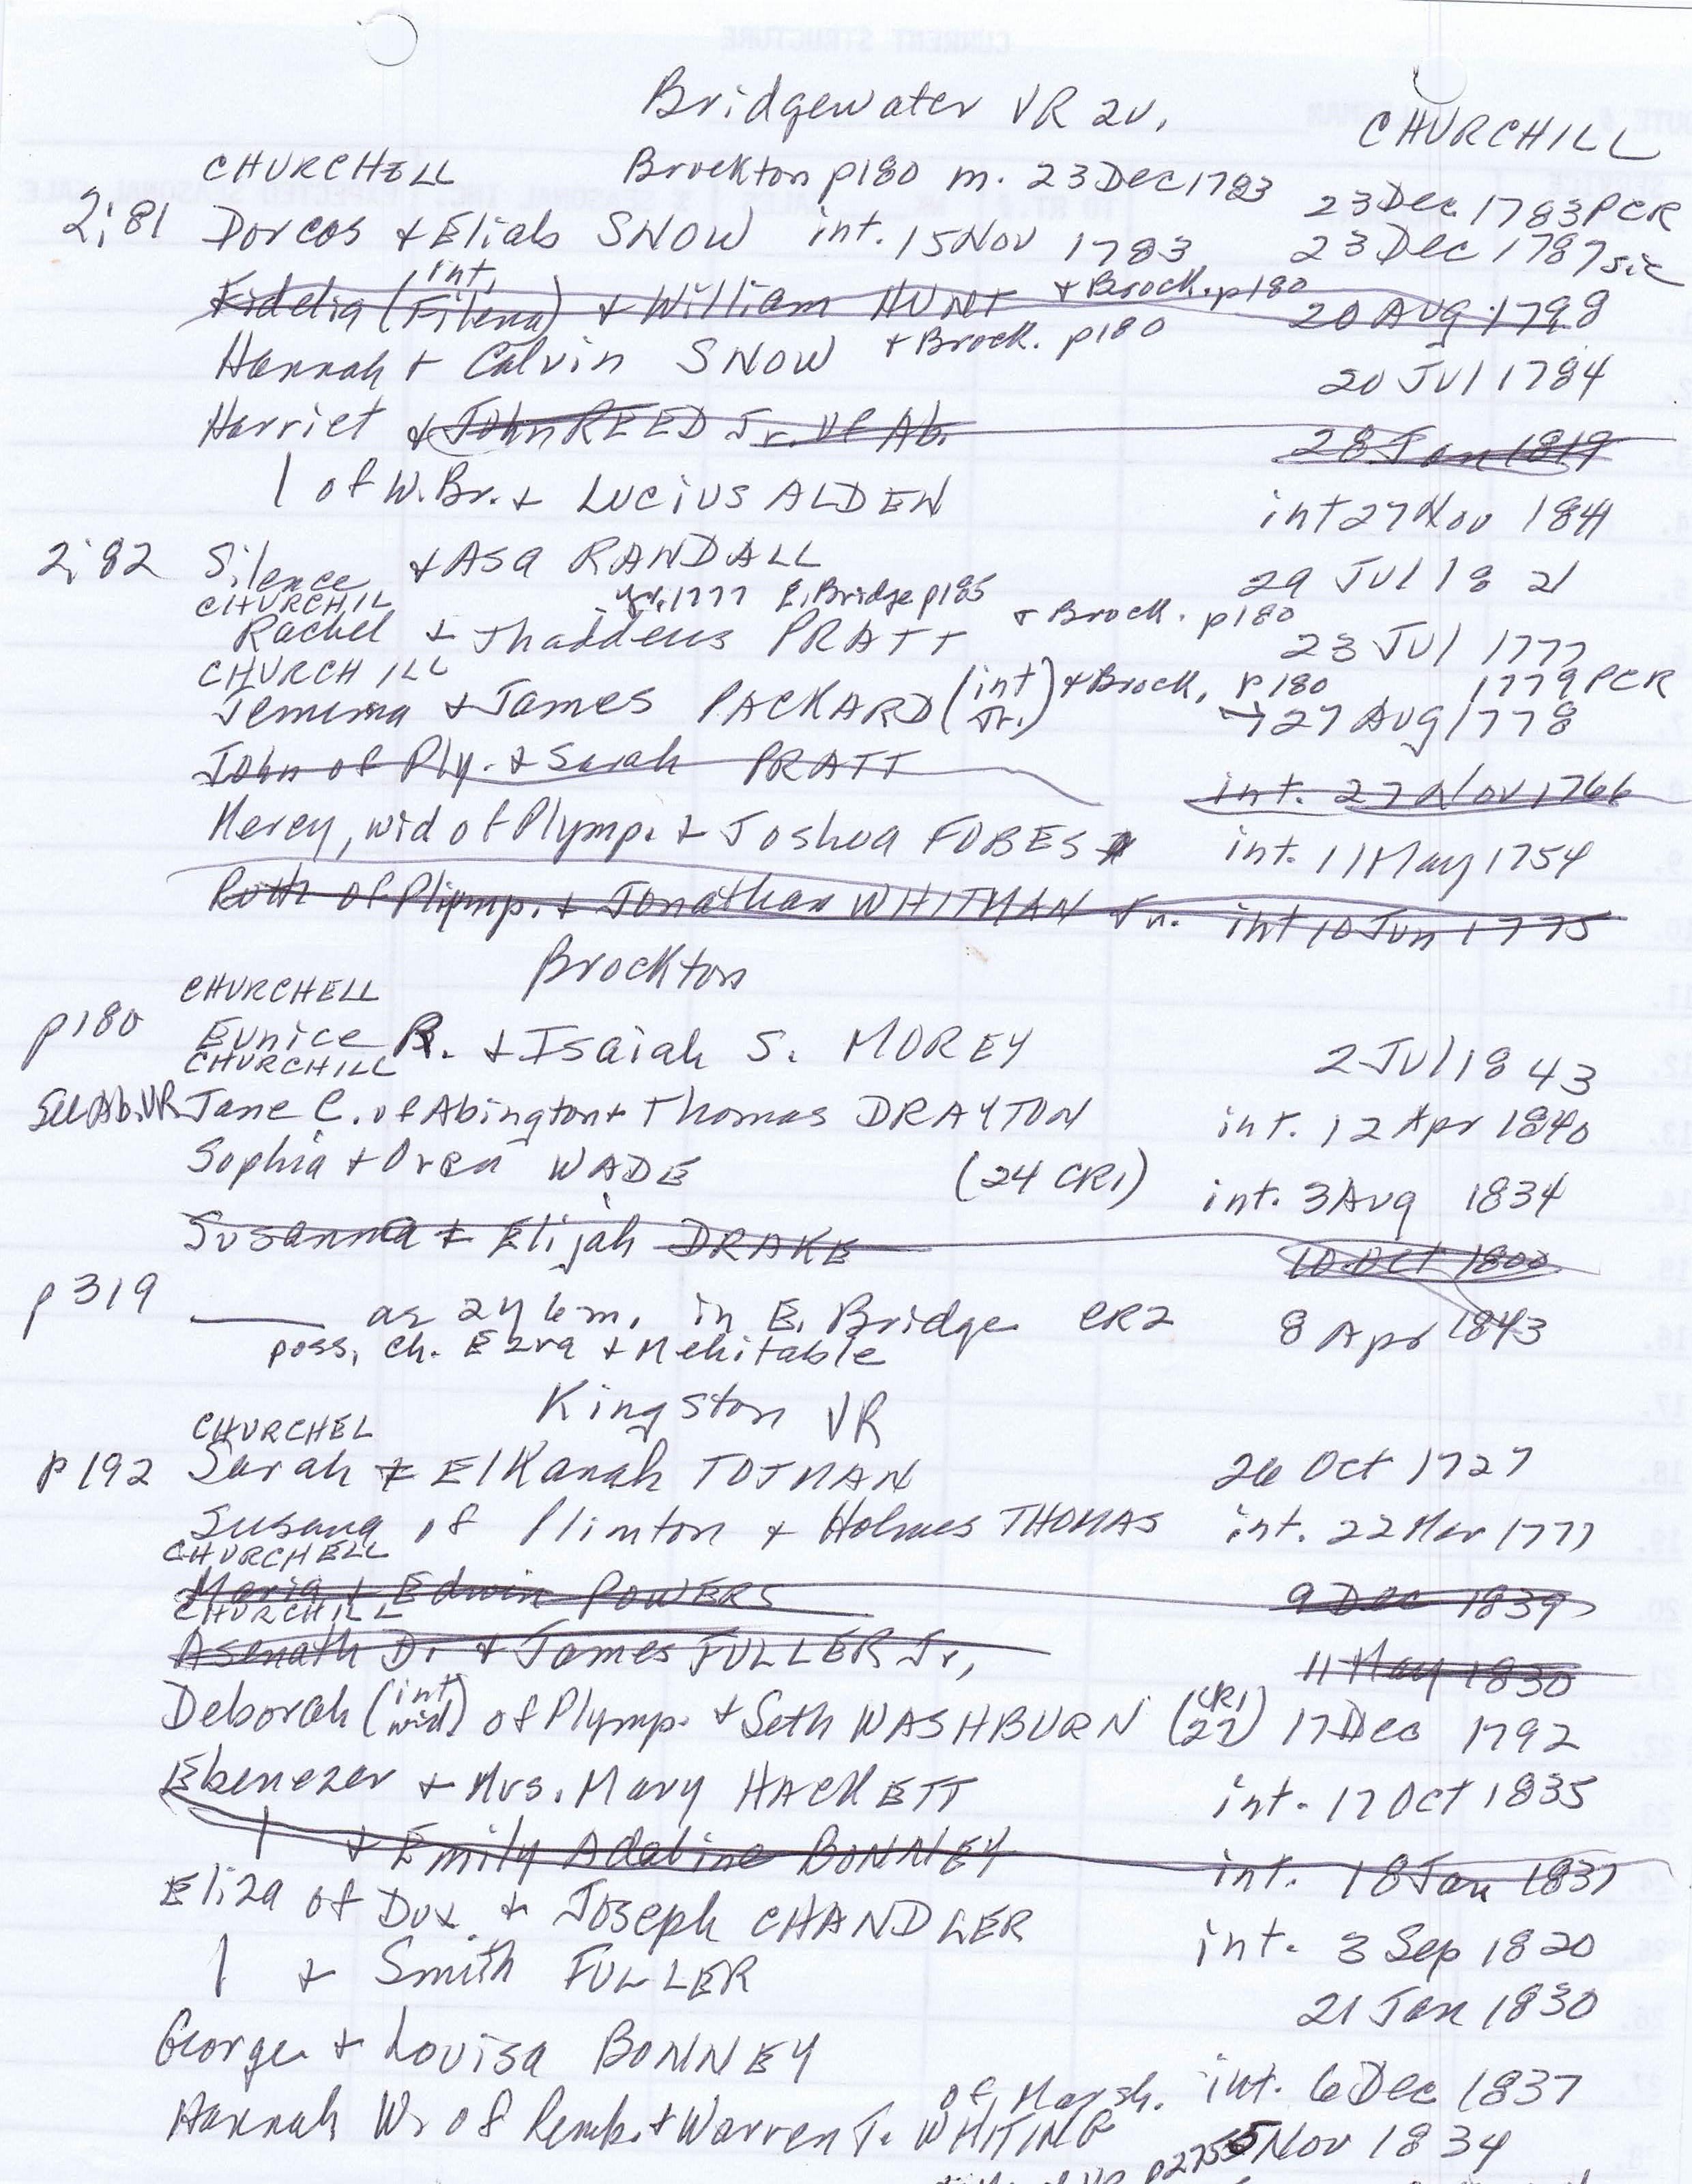 CURRENT STRUCTURE
Bridgewater VR 2v.
CHURCHILL
CHURCHELL Brockton p180 m. 23 Dec 1783
23 Dec 1783 PCR
2;81 Dorcas + Eliab SNOW int. 15 Nov 1783, 23 Dec 1787 sic
Fidelia (int, Filena) + William HUNT + Brock. p180 20 Aug 1798
Hannah + Calvin SNOW + Brock. p180 20 Jul 1784
Harriet + John REED Jr. of Ab. 28 Jan 1819
| of W.Br. + Lucius ALDEN int 27 Nov 1841
2;82 Silence + Asa RANDALL 29 Jul 18 21
CHURCHIL yr. 1777 E. Bridge p185
Rachel + Thaddeus PRATT + Brock. p180 23 Jul 1777
CHURCHILL
Jemima + James PACKARD (int Jr.) + Brock. p180 1779 PCR
→ 27 Aug 1778
John of Ply. + Sarah PRATT int. 27 Nov 1766
Mercy, wid of Plymp. + Joshua FOBES int. 11 May 1754
Ruth of Plymp. + Jonathan WHITMAN Jr. int 10 Jun 1775
Brockton
CHURCHELL
p180 Eunice R. + Isaiah S. MOREY 2 Jul 1843
CHURCHILL
See Ab. VR Jane C. of Abington + Thomas DRAYTON int. 12 Apr 1840
Sophia + Oren WADE (24 CR1) int. 3 Aug 1834
Susanna + Elijah DRAKE 10 Oct 1800
p319 ____ as 2y 6m. in E. Bridge CR2 8 Apr 1843
poss. ch. Ezra + Mehitable
Kingston VR
CHURCHEL
p192 Sarah + Elkanah TOTMAN 26 Oct 1727
Susana of Plimton + Holmes THOMAS int. 22 Mar 1777
CHURCHELL
Maria + Edwin POWERS 9 Dec 1839
CHURCHILL
Asenath D. + James FULLER Jr, 11 May 1830
Deborah (int wid) of Plymp. + Seth WASHBURN (CR1 27) 17 Dec 1792
Ebenezer + Mrs. Mary HACKETT int. 17 Oct 1835
| + Emily Adaline BONNEY int. 18 Jan 1837
Eliza of Dux. + Joseph CHANDLER int. 3 Sep 1820
| + Smith FULLER 21 Jan 1830
George + Louisa BONNEY int. 6 Dec 1837
Hannah W. of Pemb. + Warren T. WHITING of Marsh. 5 Nov 1834
VR p275